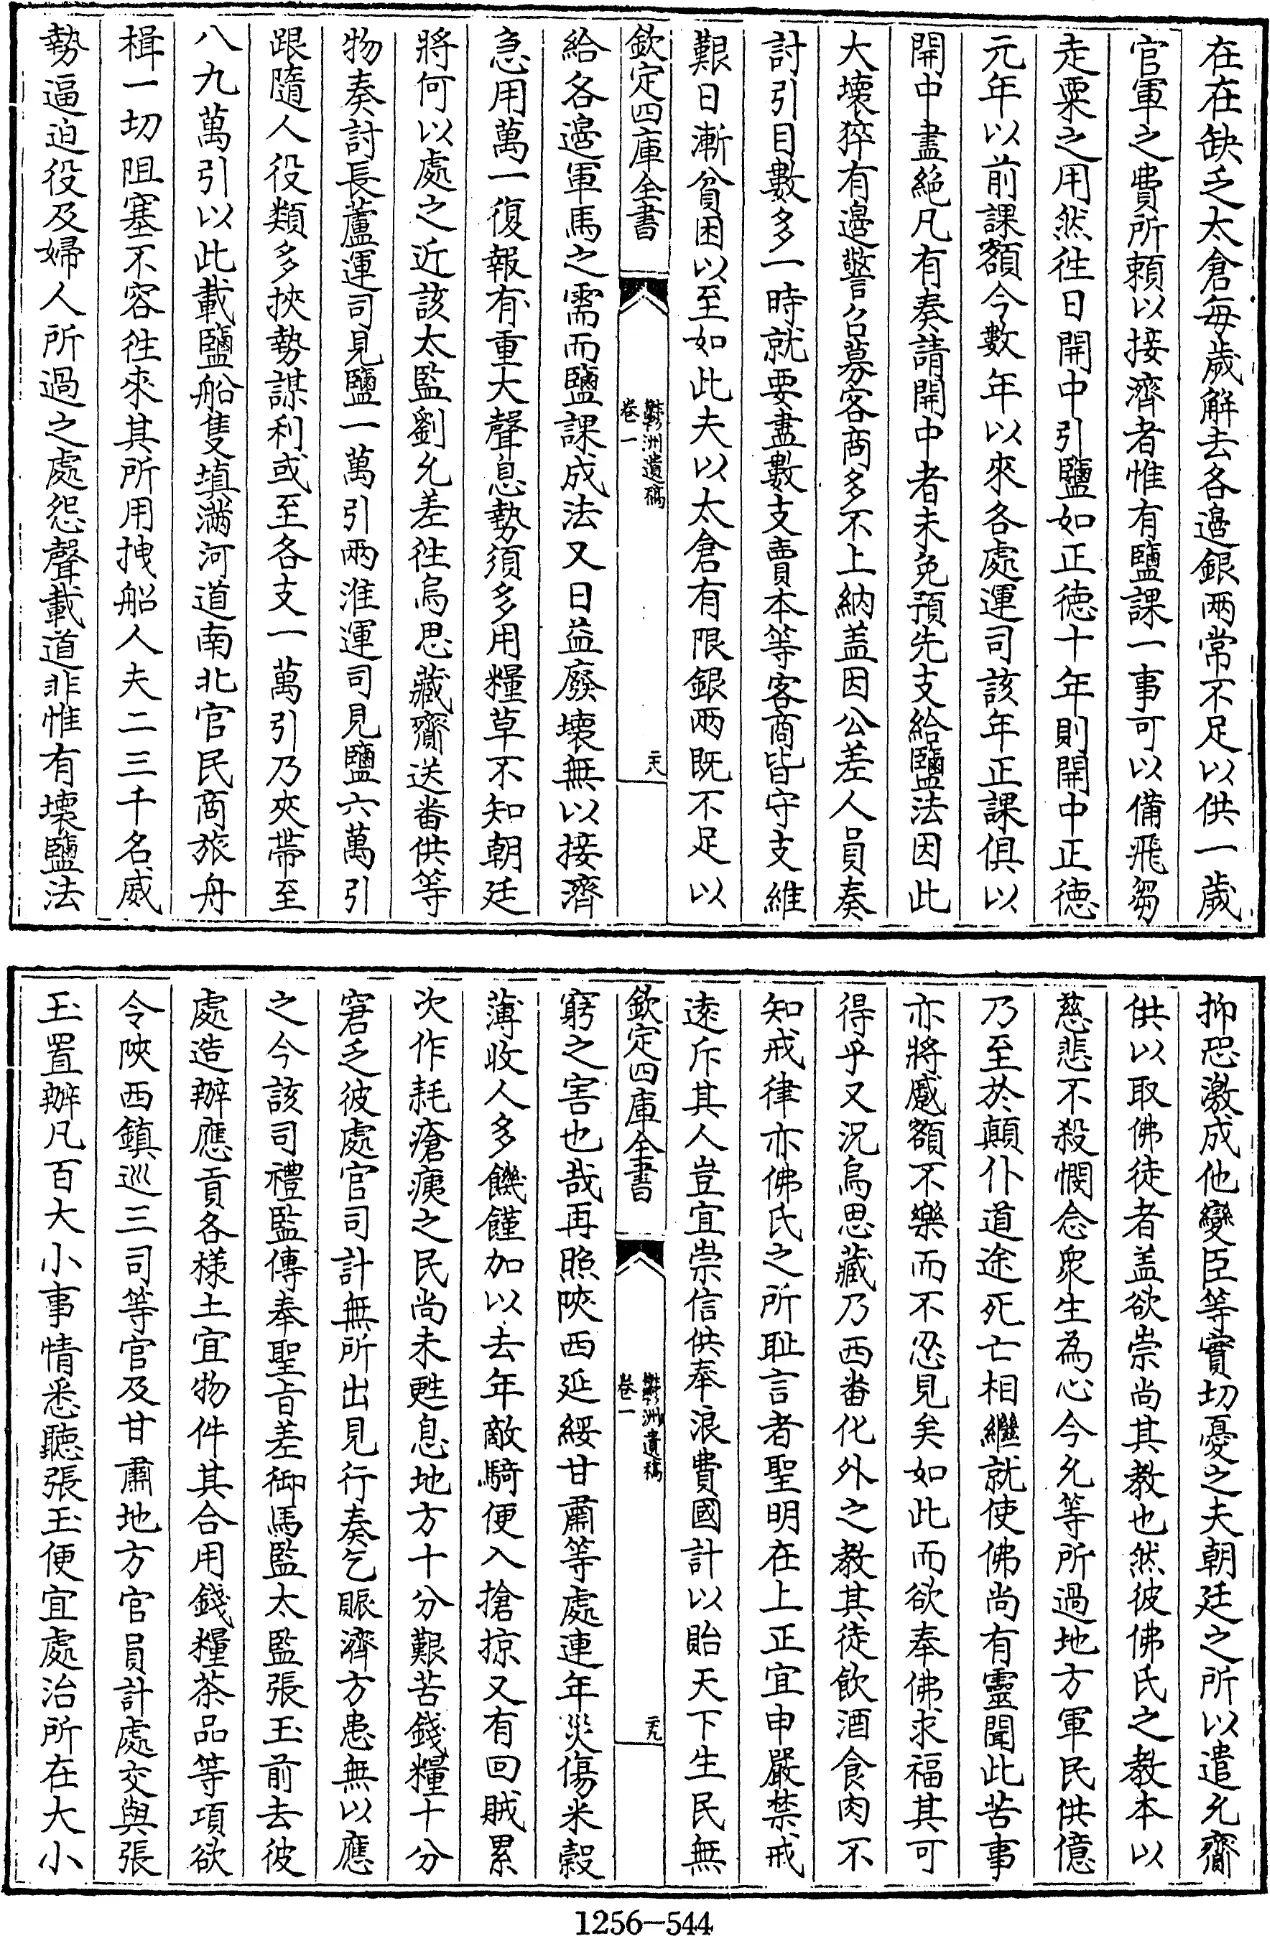 在在缺乏太倉每歲解去各邉銀兩常不足以供一歲
官軍之費所賴以接濟者惟有鹽課一事可以備飛芻
走粟之用然徃日開中引鹽如正徳十年則開中正徳
元年以前課額今數年以來各處運司該年正課俱以
開中盡絶凡有奏請開中者未免預先支給鹽法因此
大壞猝有邉警召募客商多不上納盖因公差人員奏
討引目數多一時就要盡數支賣本等客商皆守支維
艱日漸貧困以至如此夫以太倉有限銀兩既不足以
欽定四庫全書
鬱洲遺稿
卷一
二六
給各邉軍馬之需而鹽課成法又日益廢壞無以接濟
急用萬一復報有重大聲息勢須多用糧草不知朝廷
將何以處之近該太監劉允差徃烏思藏齎送番供等
物奏討長蘆運司見鹽一萬引兩淮運司見鹽六萬引
跟隨人役類多挾勢謀利或至各支一萬引乃夾帶至
八九萬引以此載鹽船隻填滿河道南北官民商旅舟
楫一切阻塞不容徃來其所用拽船人夫二三千名威
勢逼迫役及婦人所過之處怨聲載道非惟有壞鹽法
抑恐激成他變臣等實切憂之夫朝廷之所以遣允齎
供以取佛徒者盖欲崇尚其教也然彼佛氏之教本以
慈悲不殺憫念衆生為心今允等所過地方軍民供億
乃至於顛仆道途死亡相繼就使佛尚有靈聞此苦事
亦將蹙額不樂而不忍見矣如此而欲奉佛求福其可
得乎又況烏思藏乃西番化外之教其徒飲酒食肉不
知戒律亦佛氏之所耻言者聖明在上正宜申嚴禁戒
逺斥其人豈宜崇信供奉浪費國計以貽天下生民無
欽定四庫全書
鬱洲遺稿
卷一
二九
窮之害也哉再照陜西延綏甘肅等處連年災傷米穀
薄收人多饑饉加以去年敵騎便入搶掠又有回賊累
次作耗瘡痍之民尚未甦息地方十分艱苦錢糧十分
窘乏彼處官司計無所出見行奏乞賑濟方患無以應
之今該司禮監傳奉聖旨差御馬監太監張玉前去彼
處造辦應貢各様土宜物件其合用錢糧茶品等項欲
令陜西鎮巡三司等官及甘肅地方官員計處交與張
玉置辦凡百大小事情悉聽張玉便宜處治所在大小
1256-544